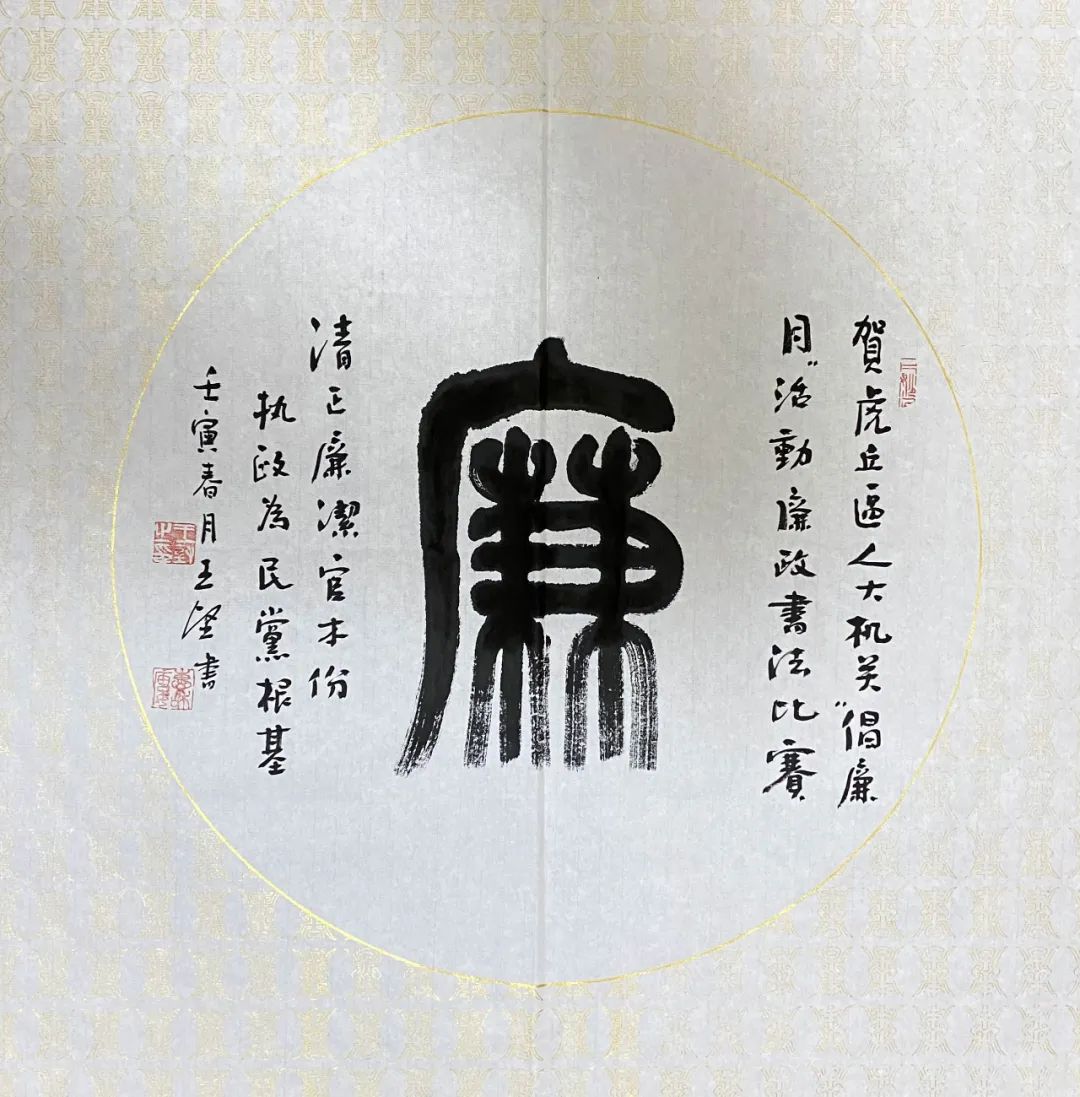 賀虎丘區人大机关"倡廉
月"活動廉政書法比賽
廉
清正廉潔官本份
执政為民黨根基
壬寅春月王書